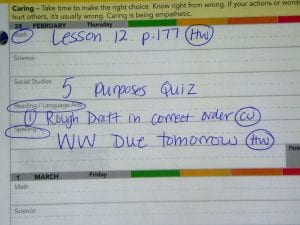 Caring – Take time to make the right choice. Know right from wrong. If your actions or words
hurt others, it's usually wrong. Caring is being empathetic.
28 FEBRUARY Thursday
Math Lesson 12 p.177 HW
Science
Social Studies 5 Purposes Quiz
Reading / Language Arts
① Rough Draft in correct order CW
Spelling WW Due tomorrow HW
1 MARCH Friday
Math
Science